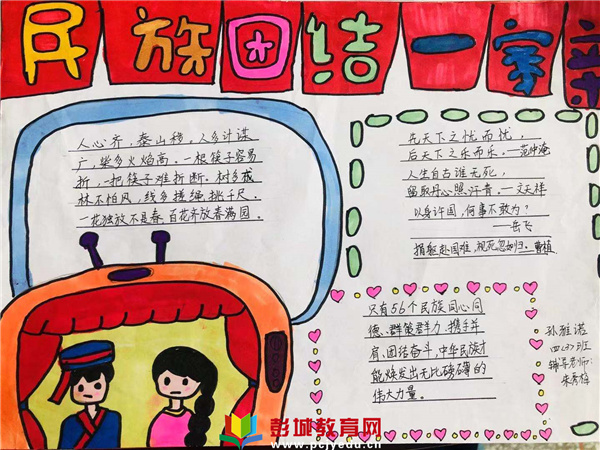 民族团结一家亲
人心齐,泰山移。人多计谋
广,柴多火焰高。一根筷子容易
折,一把筷子难折断。树多成
林不怕风,线多搓绳挑千斤。
一花独放不是春,百花齐放春满园。
先天下之忧而忧,
后天下之乐而乐。—范仲淹
人生自古谁无死,
留取丹心照汗青。—文天祥
以身许国,何事不敢为?
——岳飞
捐躯赴国难,视死忽如归。—曹植
只有56个民族同心同
德、群策群力、携手并
肩、团结奋斗,中华民族才
能焕发出无比磅礴的
伟大力量。
孙雅诺
四(3)班
辅导老师:
朱秀梅
彭城教育网
www.pcjyedu.cn